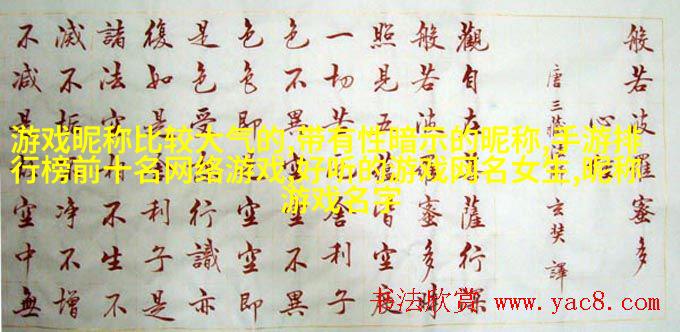 般若波羅蜜多
心
唐三藏玄奘譯
觀自在菩薩行深
般若波羅蜜多時
照見五蘊皆空度
一切苦厄舍利子
色不異空空不異
色色即是空空即
是色受想行識亦
復如是舍利子是
諸法空相不生不
滅不垢不淨不增
不減是故空中無
游戏昵称比较大气的,带有性暗示的昵称,手游排
行榜前十名网络游戏,好听的游戏网名女生,昵称
游戏名字
书法欣赏 www.yac8.com